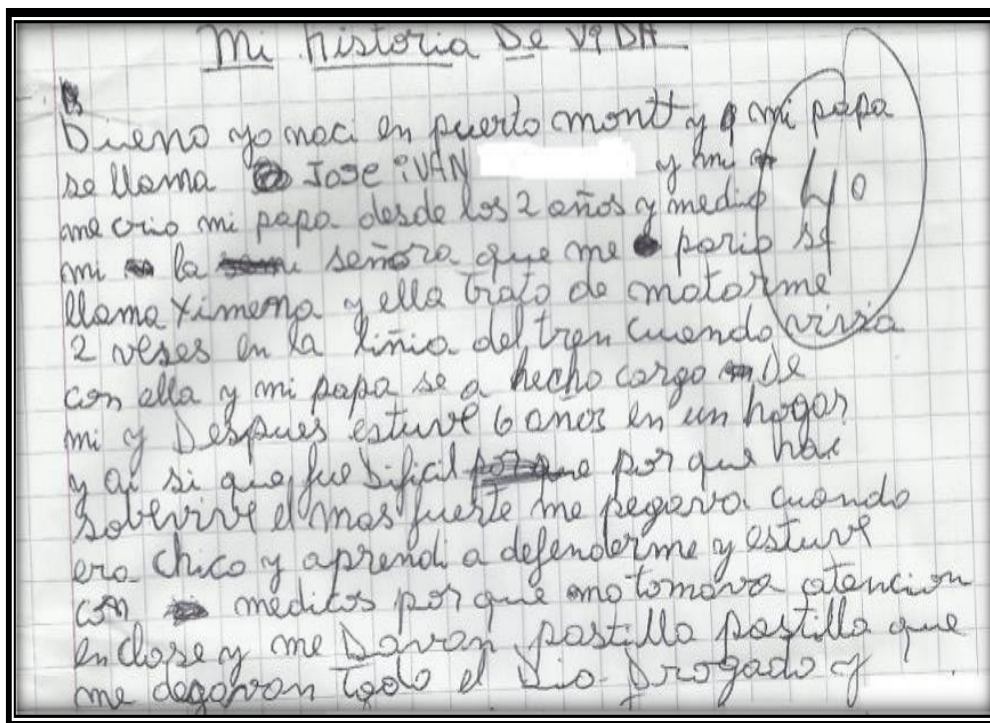 Mi historia De ViDA
Bueno yo naci en puerto montt y mi papa
se llama Jose iVAN y mi
me crio mi papa desde los 2 años y medio yo
mi la señora que me pario se
llama Ximena y ella trato de matarme
2 veses en la liñia del tren cuando vivia
con ella y mi papa se a hecho cargo De
mi y Despues estuve 6 anos en un hogar
y ai si que fue Dificil por que hai
sobevive el mas fuerte me pegava cuando
era chico y aprendi a defenderme y estuve
con medicos por que no tomava atencion
en clase y me Davan pastilla pastilla que
me degavan todo el Dia Drogado y